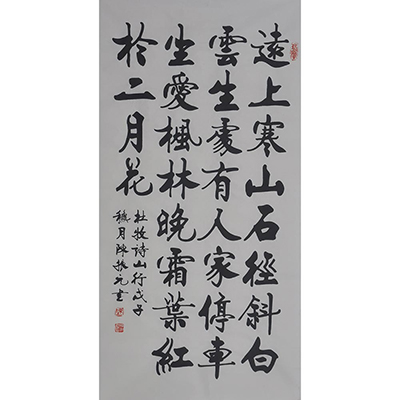 遠上寒山石徑斜白
雲生處有人家停車
坐愛楓林晚霜葉紅
於二月花
杜牧詩山行戊子
月陳振元書